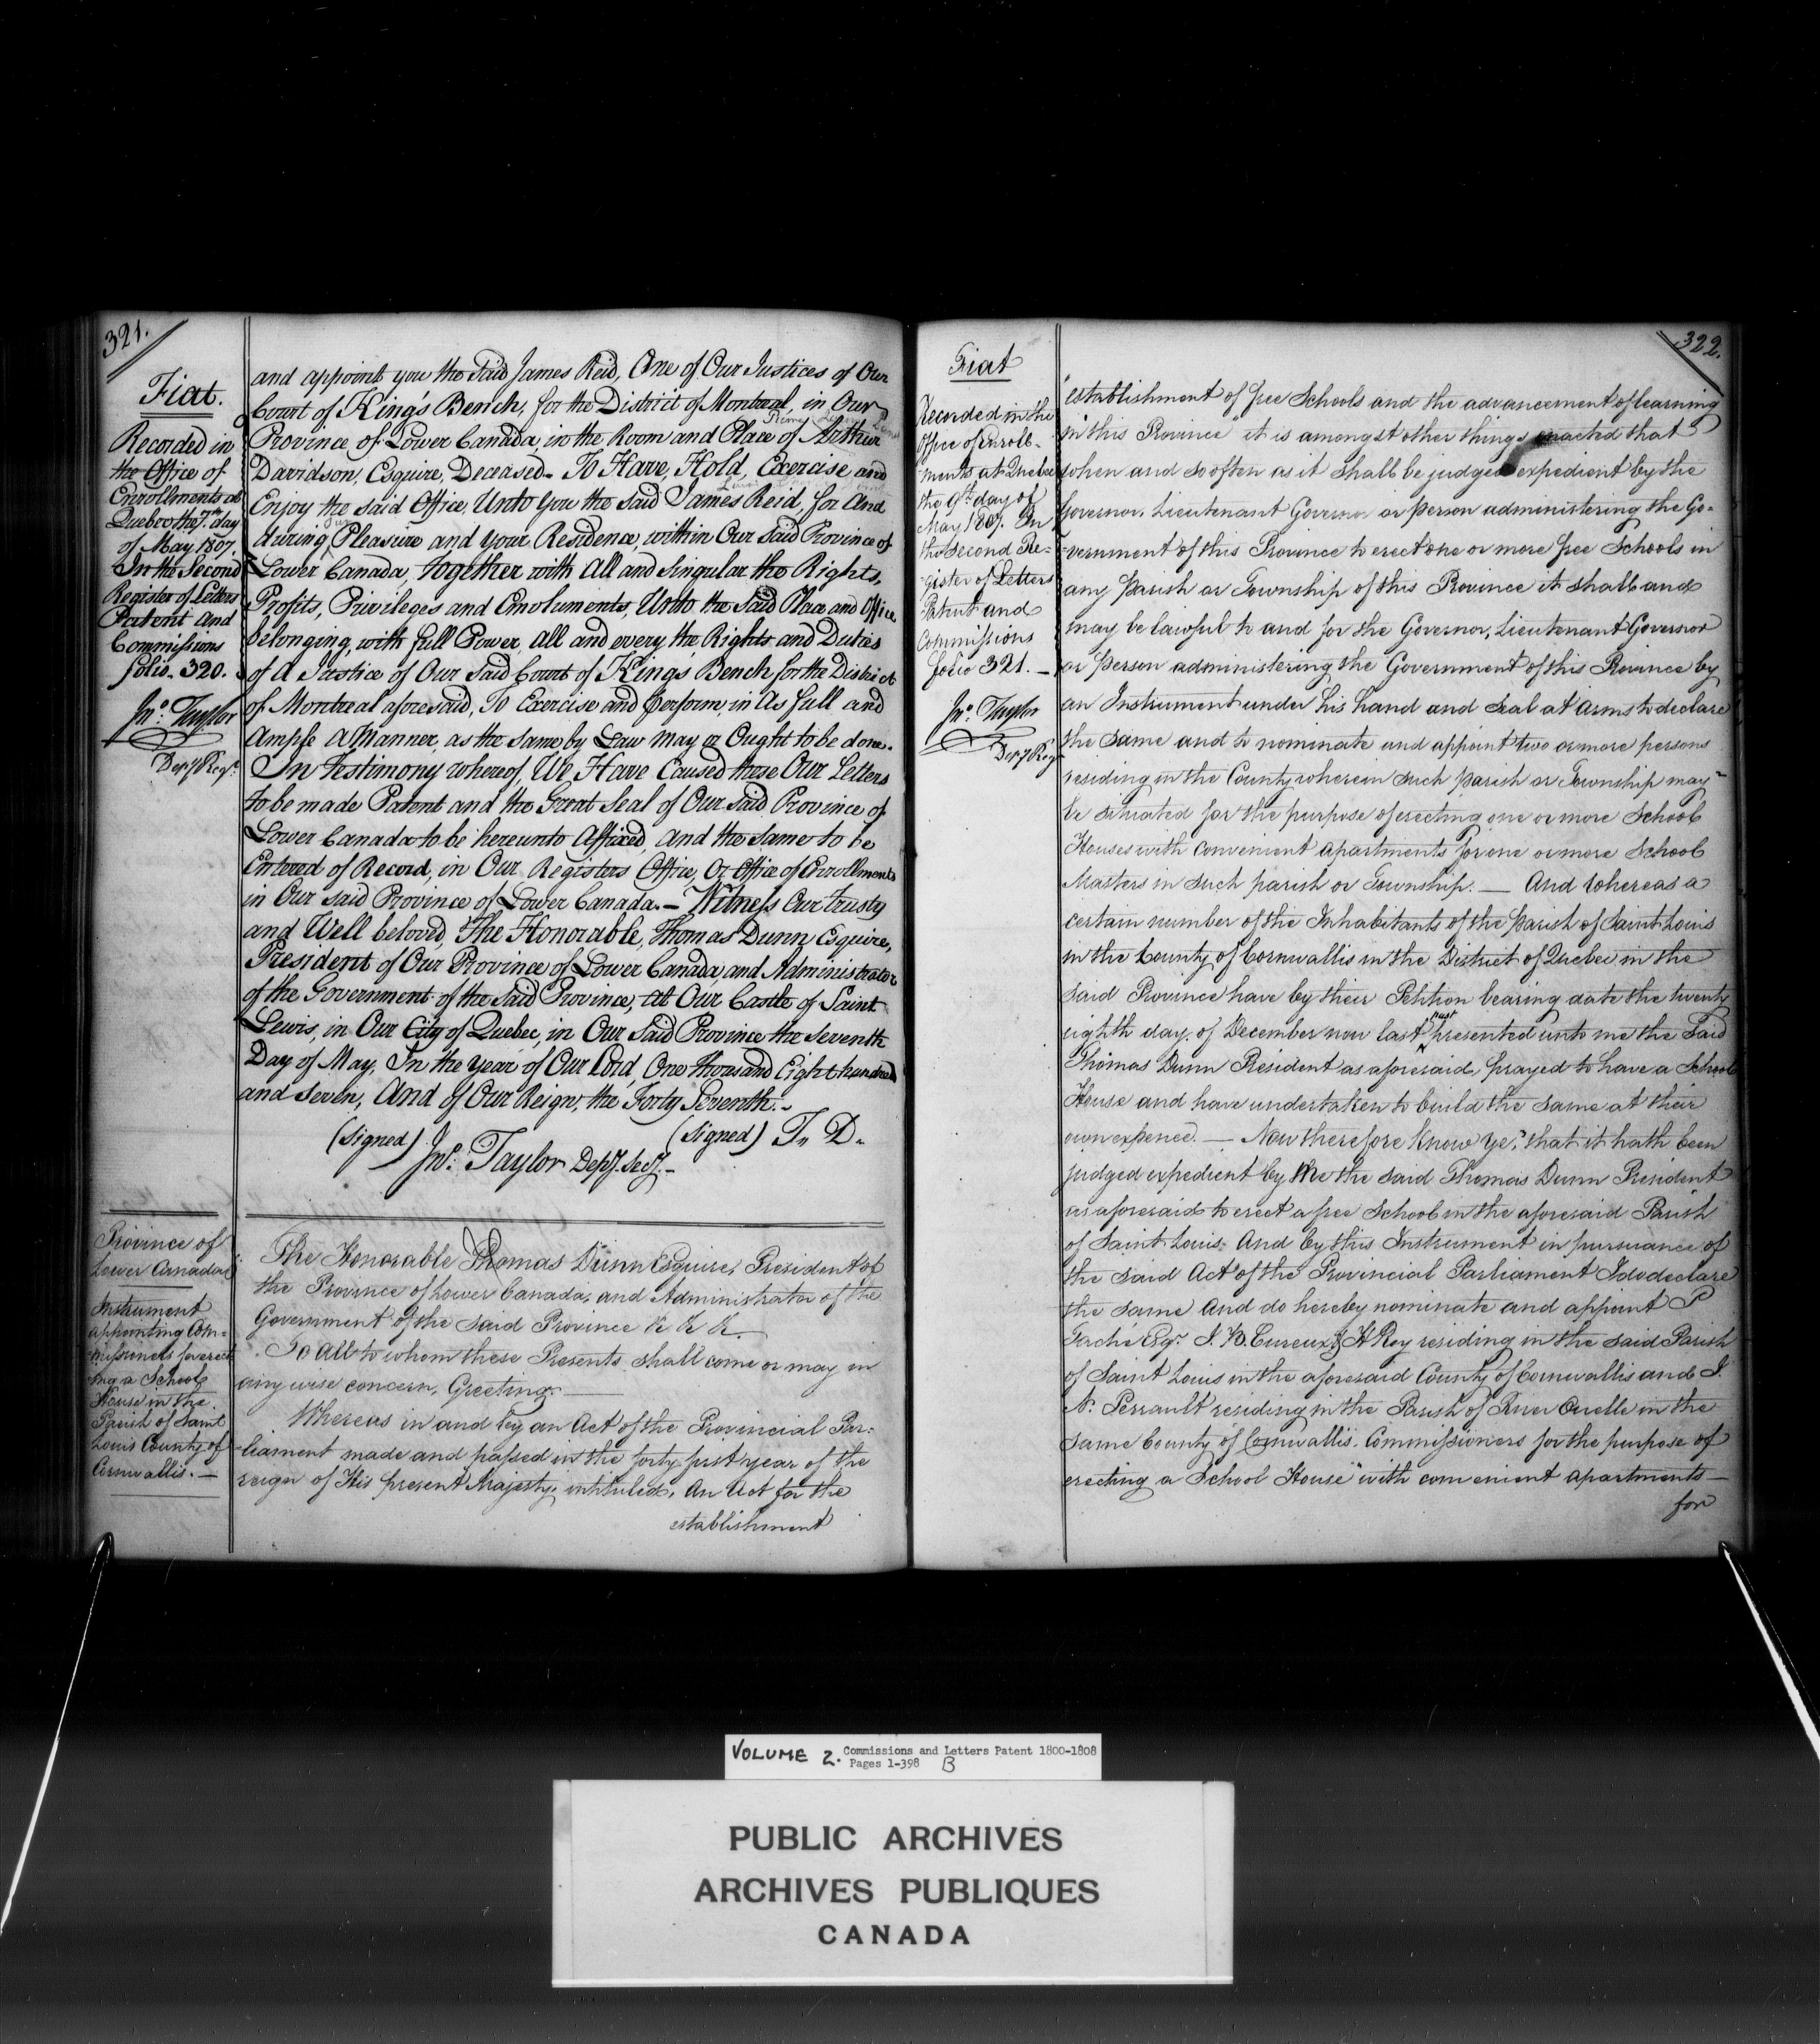 321.
Fiat.
Recorded in
the Office of
Enrollments at
Quebec the 7th day
of May 1807.
In the Second
Register of Letters
Patent and
Commissions
folio. 320.
Jno. Taylor
Depy Regr.
and appoint you the Said James Reid, One of Our Justices of Our
Court of King's Bench, for the District of Montreal, in Our
Province of Lower Canada, in the Room and Place of Arthur
Davidson, Esquire, Deceased. To Have, Hold, Exercise and
Enjoy the said Office, Unto you the said James Reid, for And
during Our Pleasure and your Residence, within Our Said Province of
Lower Canada, Together with All and Singular the Rights,
Profits, Privileges and Emoluments, Unto the Said Place and Office
belonging, with full Power, all and every the Rights and Duties
of A Justice of Our Said Court of King's Bench for the District
of Montreal aforesaid, To Exercise and Perform, in As full and
Ample A Manner, as the same by Law May or Ought to be done.
In Testimony whereof, We Have Caused these Our Letters
to be made Patent and the Great Seal of Our said Province of
Lower Canada to be hereunto Affixed, and the same to be
Entered of Record, in Our Registers Office, Or Office of Enrollments
in Our said Province of Lower Canada. — Witness Our Trusty
and Well beloved, The Honorable, Thomas Dunn, Esquire,
President of Our Province of Lower Canada, and Administrator
of the Government of the Said Province, at Our Castle of Saint
Lewis, in Our City of Quebec, in Our Said Province the Seventh
Day of May, In the Year of Our Lord, One thousand Eight hundred
and Seven, And of Our Reign, the Forty Seventh. -
(Signed) T. D.
(Signed) Jno. Taylor Depy. Secy. -
Province of
Lower Canada
Instrument
appointing Com=
missioners for erect
ing a School
House in the
Parish of Saint
Louis County of
Cornwallis. —
The Honorable Thomas Dunn Esquire, President of
the Province of Lower Canada, and Administrator of the
Government of the said Province &c &c &c.
To All to whom these Presents shall come or may in
any wise concern, Greeting: —
Whereas in and by an Act of the Provincial Par=
liament made and passed in the forty first year of the
reign of His present Majesty, intituled, An Act for the
establishment
322.
Fiat
Recorded in the
Office of Enroll-
ments at Quebec
the 9th day of
May 1807. In
the Second Re=
gister of Letters
Patent and
Commissions
folio 321. —
Jno. Taylor
Depy Regr
"establishment of free Schools and the advancement of learning
in this Province" it is amongst other things enacted that
when and so often as it shall be judged expedient by the
Governor, Lieutenant Governor or person administering the Go=
vernment of this Province to erect one or more free Schools in
any Parish or Township of this Province it shall and
may be lawful to and for the Governor, Lieutenant Governor
or person administering the Government of this Province by
an Instrument under his hand and Seal at Arms to declare
the same and to nominate and appoint two or more persons
residing in the County wherein such parish or Township may
be situated for the purpose of erecting one or more School
Houses with convenient apartments for one or more School
Masters in such parish or Township. — And Whereas a
certain number of the Inhabitants of the Parish of Saint Louis
in the County of Cornwallis in the District of Quebec in the
said Province have by their Petition bearing date the twenty
eighth day of December now last past presented unto me the Said
Thomas Dunn President as aforesaid, prayed to have a School
House and have undertaken to build the same at their
own expence. — Now therefore Know ye, that it hath been
judged expedient by Me the said Thomas Dunn President
as aforesaid to erect a free School in the aforesaid Parish
of Saint Louis. And by this Instrument in pursuance of
the said Act of the Provincial Parliament I do declare
the same And do hereby nominate and appoint P
Taché Esqr. J. B. Cureux, & H Roy residing in the said Parish
of Saint Louis in the aforesaid County of Cornwallis and J.
N. Perrault residing in the Parish of River Ouelle in the
same County of Cornwallis. Commissioners for the purpose of
erecting a School House "with convenient apartments —
for
VOLUME 2. Commissions and Letters Patent 1800-1808
Pages 1-398 B
PUBLIC ARCHIVES
ARCHIVES PUBLIQUES
CANADA